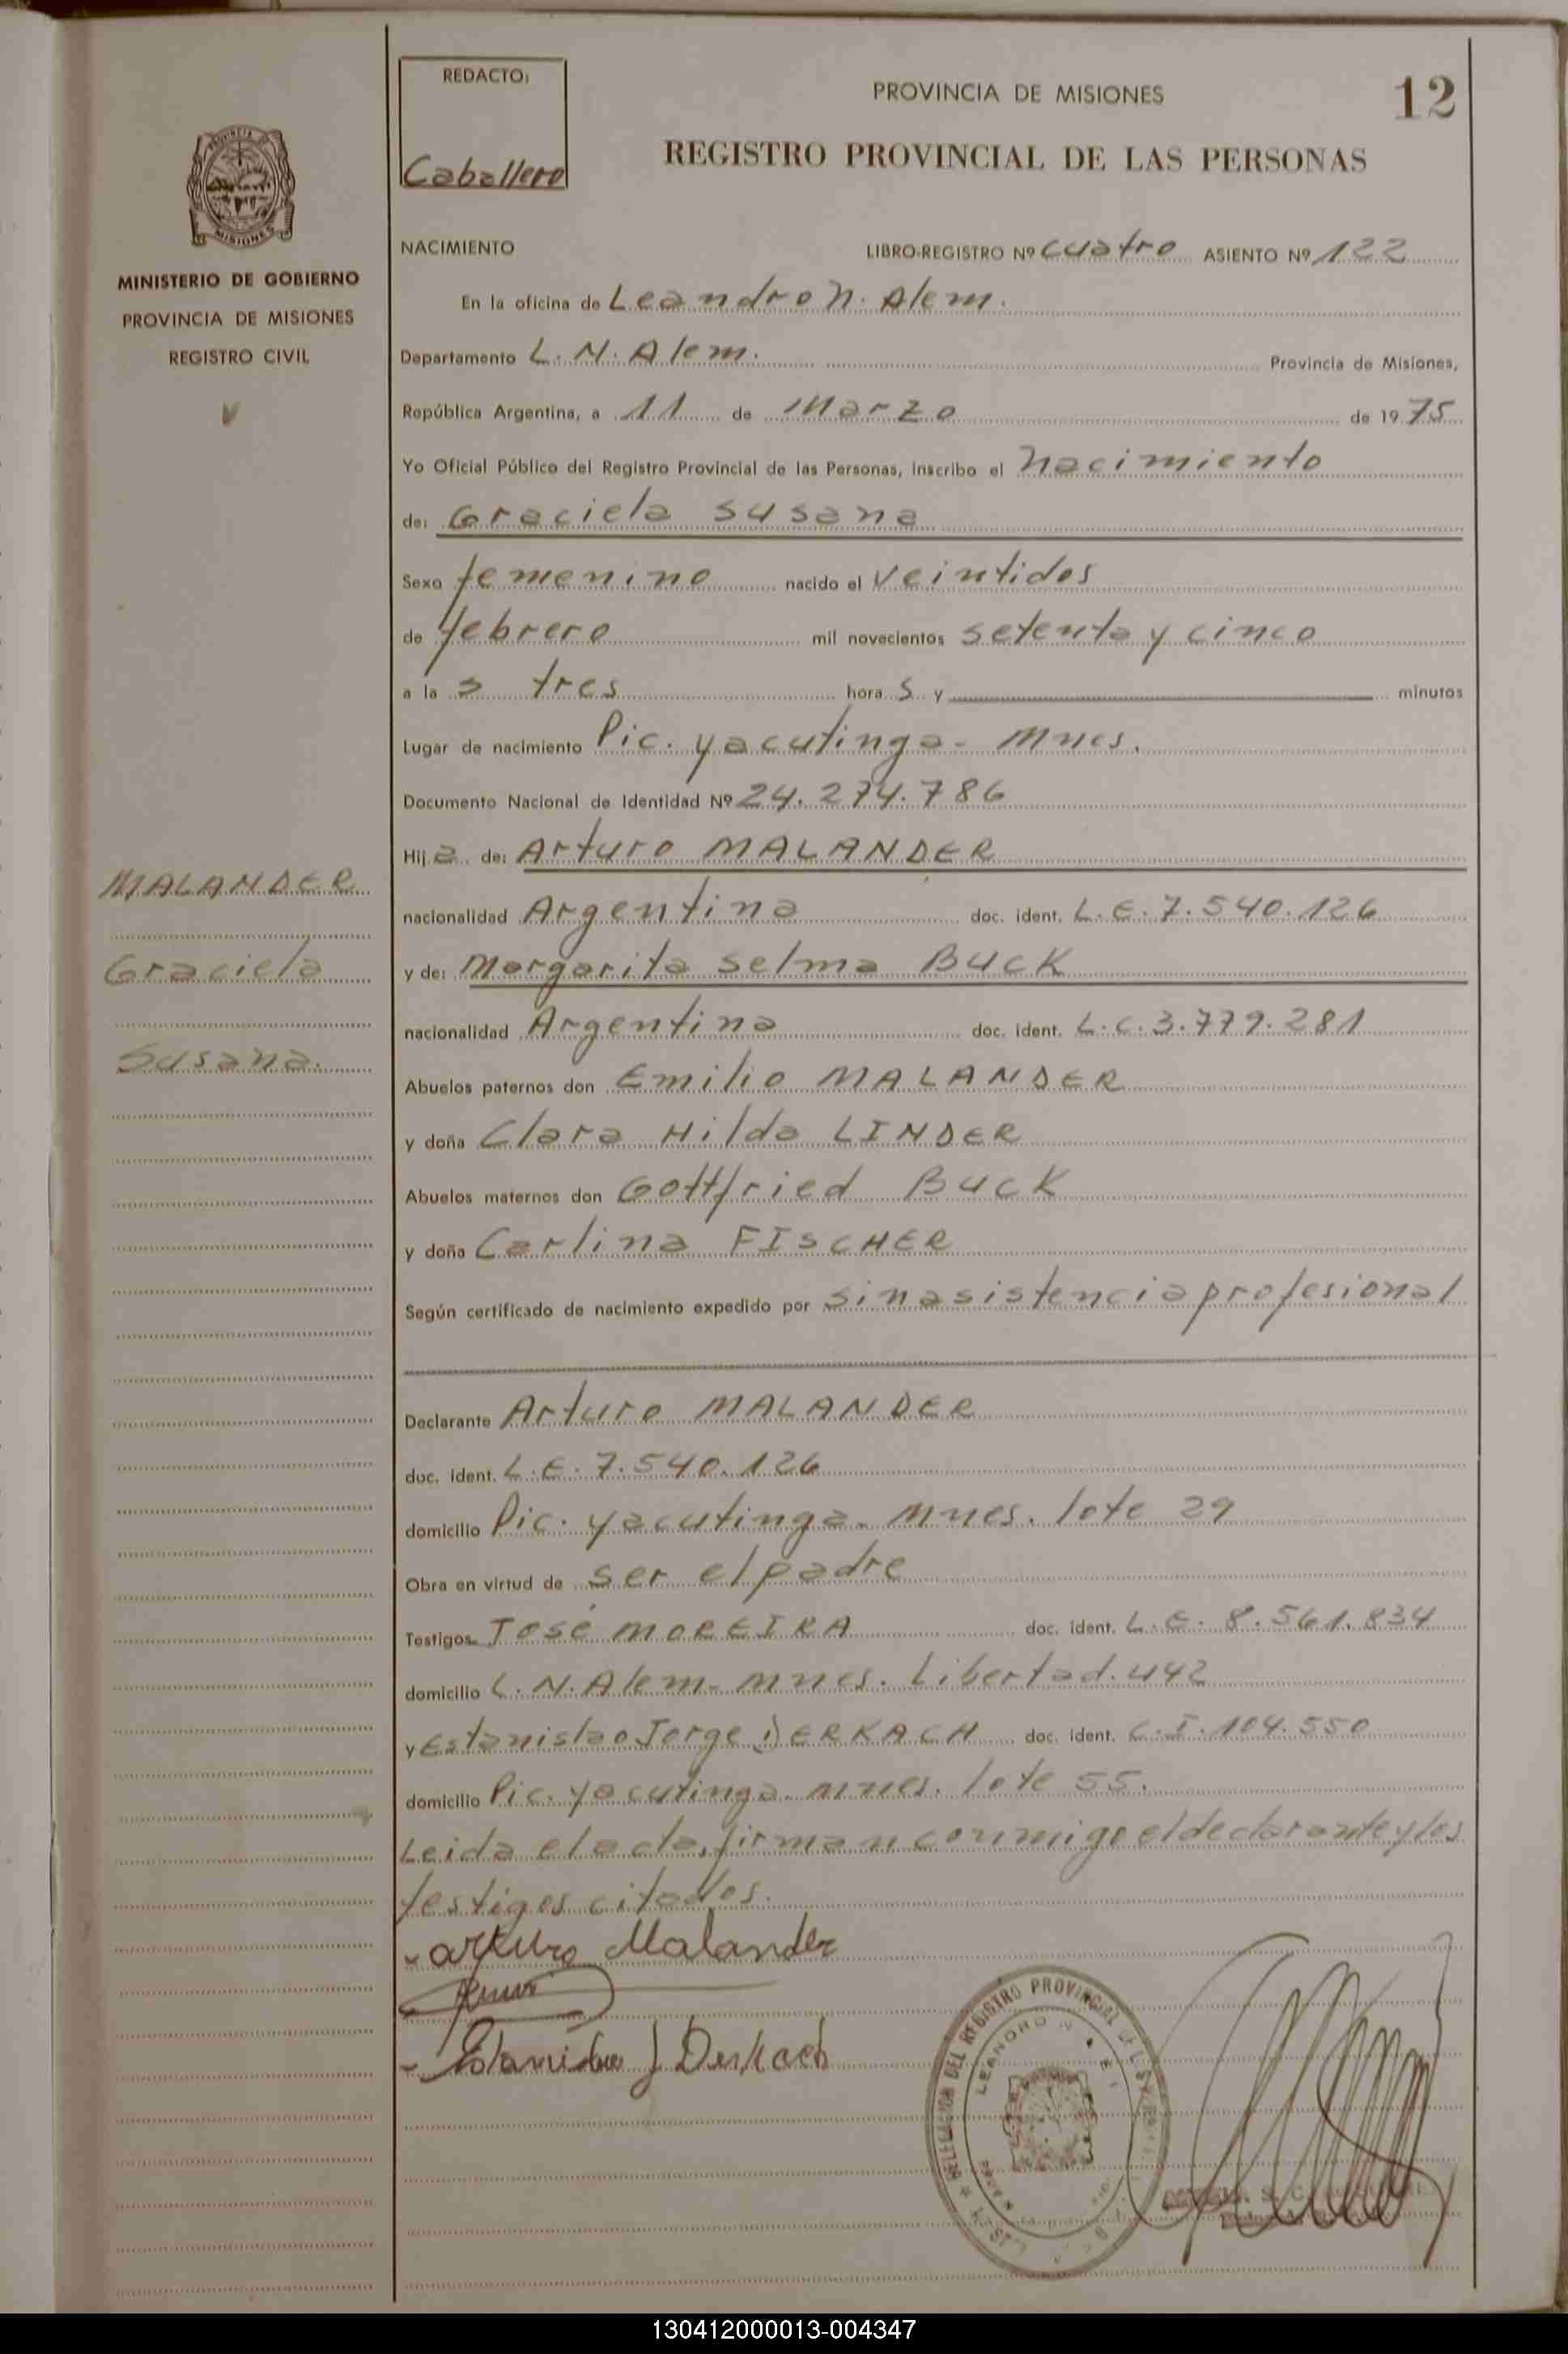 REDACTO:
Caballero
PROVINCIA DE MISIONES
12
REGISTRO PROVINCIAL DE LAS PERSONAS
PROVINCIA DE
MISIONES
MINISTERIO DE GOBIERNO
PROVINCIA DE MISIONES
REGISTRO CIVIL
NACIMIENTO LIBRO-REGISTRO Nº cuatro ASIENTO Nº 122
En la oficina de Leandro N. Alem.
Departamento L. N. Alem. Provincia de Misiones,
República Argentina, a 11 de Marzo de 1975
Yo Oficial Público del Registro Provincial de las Personas, inscribo el nacimiento
de: Graciela Susana
Sexo femenino nacido el veintidos
de febrero mil novecientos setenta y cinco
a la s tres hora s y minutos
Lugar de nacimiento Pic. yacutinga - Mnes.
Documento Nacional de Identidad Nº 24.274.786
Hij a de: Arturo MALANDER
nacionalidad Argentina doc. ident. L.E. 7.540.126
y de: Margarita Selma BUCK
nacionalidad Argentina doc. ident. L.C. 3.779.281
Abuelos paternos don Emilio MALANDER
y doña Clara Hilda LINDER
Abuelos maternos don Gottfried BUCK
y doña Carlina FISCHER
Según certificado de nacimiento expedido por sin asistencia profesional
MALANDER
Graciela
Susana.
Declarante Arturo MALANDER
doc. ident. L.E. 7.540.126
domicilio Pic. yacutinga. Mnes. lote 29
Obra en virtud de ser el padre
Testigos José MOREIRA doc. ident. L.E. 8.561.834
domicilio L. N. Alem - Mnes. Libertad. 442
y Estanislao Jorge DERKACH doc. ident. C.I. 104.550
domicilio Pic. yacutinga. Mnes. lote 55.
Leida el acta, firman conmigo el declarante y los
testigos citados.
- arturo Malander
- Estanislao J Derkach
DELEGACION DEL REGISTRO PROVINCIAL DE LAS
LEANDRO N.
130412000013-004347